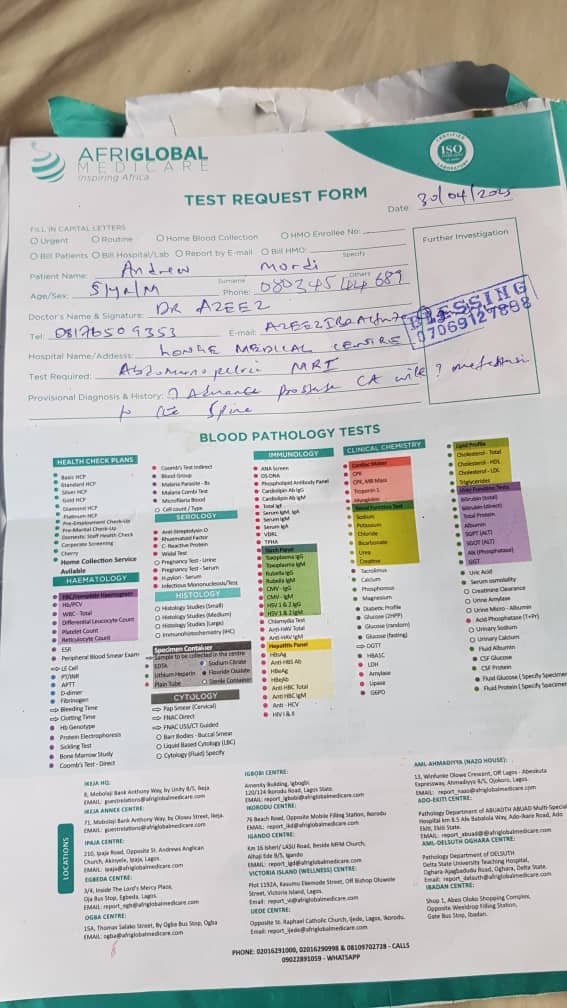 AFRIGLOBAL
MEDICARE
Inspiring Africa
CERTIFIED
ISO
LABORATORY
TEST REQUEST FORM
Date: 30/04/2025
FILL IN CAPITAL LETTERS
Urgent Routine Home Blood Collection HMO Enrollee No:
Bill Patients Bill Hospital/Lab Report by E-mail Bill HMO:
Specify
Further Investigation
Patient Name: Andrew Mordi
Surname Others
Age/Sex: 51yr/M Phone: 08034544689
Doctor's Name & Signature: DR AZEEZ
Tel: 08176509353 E-mail:
BLESSING
07069127898
Hospital Name/Address: MEDICAL CENTRE
Test Required: Abdominopelvic MRI
Provisional Diagnosis & History: ? Advance prostate CA with ? metastasis
to the Spine
BLOOD PATHOLOGY TESTS
HEALTH CHECK PLANS
Basic HCP
Standard HCP
Silver HCP
Gold HCP
Diamond HCP
Platinum HCP
Pre-Employment Check-Up
Pre-Marital Check-Up
Domestic Staff Health Check
Corporate Screening
Cherry
Home Collection Service
Avilable
HAEMATOLOGY
FBC/Complete Haemogram
Hb/PCV
WBC - Total
Differential Leucocyte Count
Platelet Count
Reticulocyte Count
ESR
Peripheral Blood Smear Exam
LE Cell
PT/INR
APTT
D-dimer
Fibrinogen
Bleeding Time
Clotting Time
Hb Genotype
Protein Electrophoresis
Sickling Test
Bone Marrow Study
Coomb's Test - Direct
Coomb's Test Indirect
Blood Group
Malaria Parasite - Bs
Malaria Combi Test
Microfilaria Blood
Cell count / Type
SEROLOGY
Anti-Streptolysin O
Rheumatoid Factor
C- Reactive Protein
Widal Test
Pregnancy Test - Urine
Pregnancy Test - Serum
H.pylori - Serum
Infectious Mononucleosis/Test
HISTOLOGY
Histology Studies (Small)
Histology Studies (Medium)
Histology Studies (Large)
Immunohistochemistry (IHC)
Specimen Container
Sample to be collected in the centre
EDTA Sodium Citrate
Lithium Heparin Flouride Oxalate
Plain Tube Sterile Container
CYTOLOGY
Pap Smear (Cervical)
FNAC Direct
FNAC USS/CT Guided
Barr Bodies - Buccal Smear
Liquid Based Cytology (LBC)
Cytology (Fluid) Specify
IMMUNOLOGY
ANA Screen
DS DNA
Phospholipid Antibody Panel
Cardiolipin Ab IgG
Cardiolipin Ab IgM
Total IgE
Serum IgM, IgA
Serum IgM
Serum IgA
VDRL
TPHA
Torch Panel
Toxoplasma IgG
Toxoplasma IgM
Rubella IgG
Rubella IgM
CMV - IgG
CMV - IgM
HSV 1 & 2 IgG
HSV 1 & 2 IgM
Chlamydia Test
Anti-HAV Total
Anti-HAV IgM
Hepatitis Panel
HBsAg
Anti-HBS Ab
HBeAg
HBeAb
Anti HBC Total
Anti HBC IgM
Anti - HCV
HIV I & II
CLINICAL CHEMISTRY
Cardiac Maker
CPK
CPK, MB Mass
Troponin 1
Myoglobin
Renal Function Test
Sodium
Potassium
Chloride
Bicarbonate
Urea
Creatine
Tacrolimus
Calcium
Phosphorous
Magnesium
Diabetic Profile
Glucose (2HPP)
Glucose (random)
Glucose (fasting)
OGTT
HBA1C
LDH
Amylase
Lipase
G6PD
Lipid Profile
Cholesterol - Total
Cholesterol - HDL
Cholesterol - LDL
Triglycerides
Liver Function Tests
Bilirubin (total)
Bilirubin (direct)
Total Protein
Albumin
SGPT (ALT)
SGOT (ALT)
Alk (Phosphatase)
GGT
Uric Acid
Serum osmolality
Creatinine Clearance
Urine Amylase
Urine Micro - Albumin
Acid Phosphatase (T+Pr)
Urinary Sodium
Urinary Calcium
Fluid Albumin
CSF Glucose
CSF Protein
Fluid Glucose ( Specify Specimen
Fluid Protein ( Specify Specimen
LOCATIONS
IKEJA HQ:
8, Mobolaji Bank Anthony Way, by Unity B/S, Ikeja
EMAIL: guestrelations@afriglobalmedicare.com
IKEJA ANNEX CENTRE:
71, Mobolaji Bank Anthony Way, by Olowu Street, Ikeja.
EMAIL: guestrelations@afriglobalmedicare.com
IPAJA CENTRE:
210, Ipaja Road, Opposite St. Andrews Anglican
Church, Akinyele, Ipaja, Lagos.
EMAIL: ipaja@afriglobalmedicare.com
EGBEDA CENTRE:
3/4, Inside The Lord's Mercy Plaza,
Oja Bus Stop, Egbeda, Lagos.
EMAIL: report_egb@afriglobalmedicare.com
OGBA CENTRE:
15A, Thomas Salako Street, By Ogba Bus Stop, Ogba
EMAIL: ogba@afriglobalmedicare.com
IGBOBI CENTRE:
Amenity Building, Igbogbi
120/124 Ikorodu Road, Lagos State.
EMAIL: report_igbobi@afriglobalmedicare.com
IKORODU CENTRE:
76 Beach Road, Opposite Mobile Filling Station, Ikorodu
EMAIL: report_ikd@afriglobalmedicare.com
IGANDO CENTRE:
Km 16 Isheri/ LASU Road, Beside MFM Church,
Alhaji Ede B/S, Igando
EMAIL: report_igd@afriglobalmedicare.com
VICTORIA ISLAND (WELLNESS) CENTRE:
Plot 1192A, Kasumu Ekemode Street, Off Bishop Oluwole
Street, Victoria Island, Lagos.
Email: report_vi@afriglobalmedicare.com
IJEDE CENTRE:
Opposite St. Raphael Catholic Church, Ijede, Lagos, Ikorodu.
Email: report_ijede@afriglobalmedicare.com
AML-AHMADIYYA (NAZO HOUSE):
13, Winfunke Olowe Crescent, Off Lagos - Abeokuta
Expressway, Ahmadiyya B/S, Ojokoro, Lagos.
EMAIL: report_nazo@afriglobalmedicare.com
ADO-EKITI CENTRE:
Pathology Department of ABUADTH ABUAD Multi-Special
Hospital km 8.5 Afe Babalola Way, Ado-Ikare Road, Ado
Ekiti, Ekiti State.
EMAIL: report_abuad@afriglobalmedicare.com
AML-DELSUTH OGHARA CENTRE:
Pathology Department of DELSUTH
Delta State University Teaching Hospital,
Oghara-Ajagbadudu Road, Oghara, Delta State.
Email: report_delsuth@afriglobalmedicare.com
IBADAN CENTRE:
Shop 1, Abeo Oloko Shopping Complex,
Opposite Weekdrop Filling Station,
Gate Bus Stop, Ibadan.
PHONE: 02016291000, 02016290998 & 08109702728 - CALLS
09022891059 - WHATSAPP